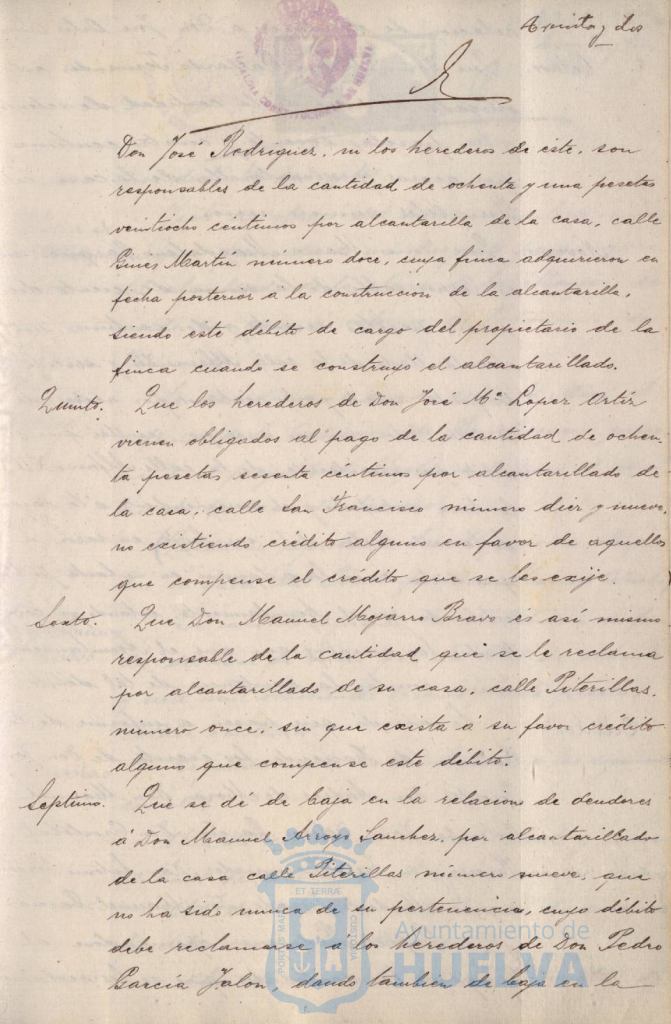 treinta y dos
ALCALDIA CONSTITUCIONAL DE HUELVA
Don José Rodriguez, ni los herederos de este, son
responsables de la cantidad de ochenta y una pesetas
veintiocho centimos por alcantarilla de la casa, calle
Ginés Martín número doce, cuya finca adquirieron en
fecha posterior á la construccion de la alcantarilla,
siendo este débito de cargo del propietario de la
finca cuando se construyó el alcantarillado.
Quinto. Que los herederos de Don José Mª Lopez Ortíz
vienen obligados al pago de la cantidad de ochen-
ta pesetas sesenta céntimos por alcantarillado de
la casa, calle San Francisco número diez y nueve,
no existiendo crédito alguno en favor de aquellos
que compense el crédito que se les exije.
Sexto. Que Don Manuel Mojarro Bravo és así mismo
responsable de la cantidad que se le reclama
por alcantarillado de su casa, calle Piterillas,
número once, sin que exista á su favor crédito
alguno que compense este débito.
Septimo. Que se dé de baja en la relacion de deudores
á Don Manuel Arroyo Sanchez, por alcantarillado
de la casa calle Piterillas número nueve, que
no ha sido nunca de su pertenencia, cuyo débito
debe reclamarse á los herederos de Don Pedro
García Jalon, dando tambien de baja en la
PORTUS MARIS
ET TERRAE
CUSTODIA
Ayuntamiento de
HUELVA